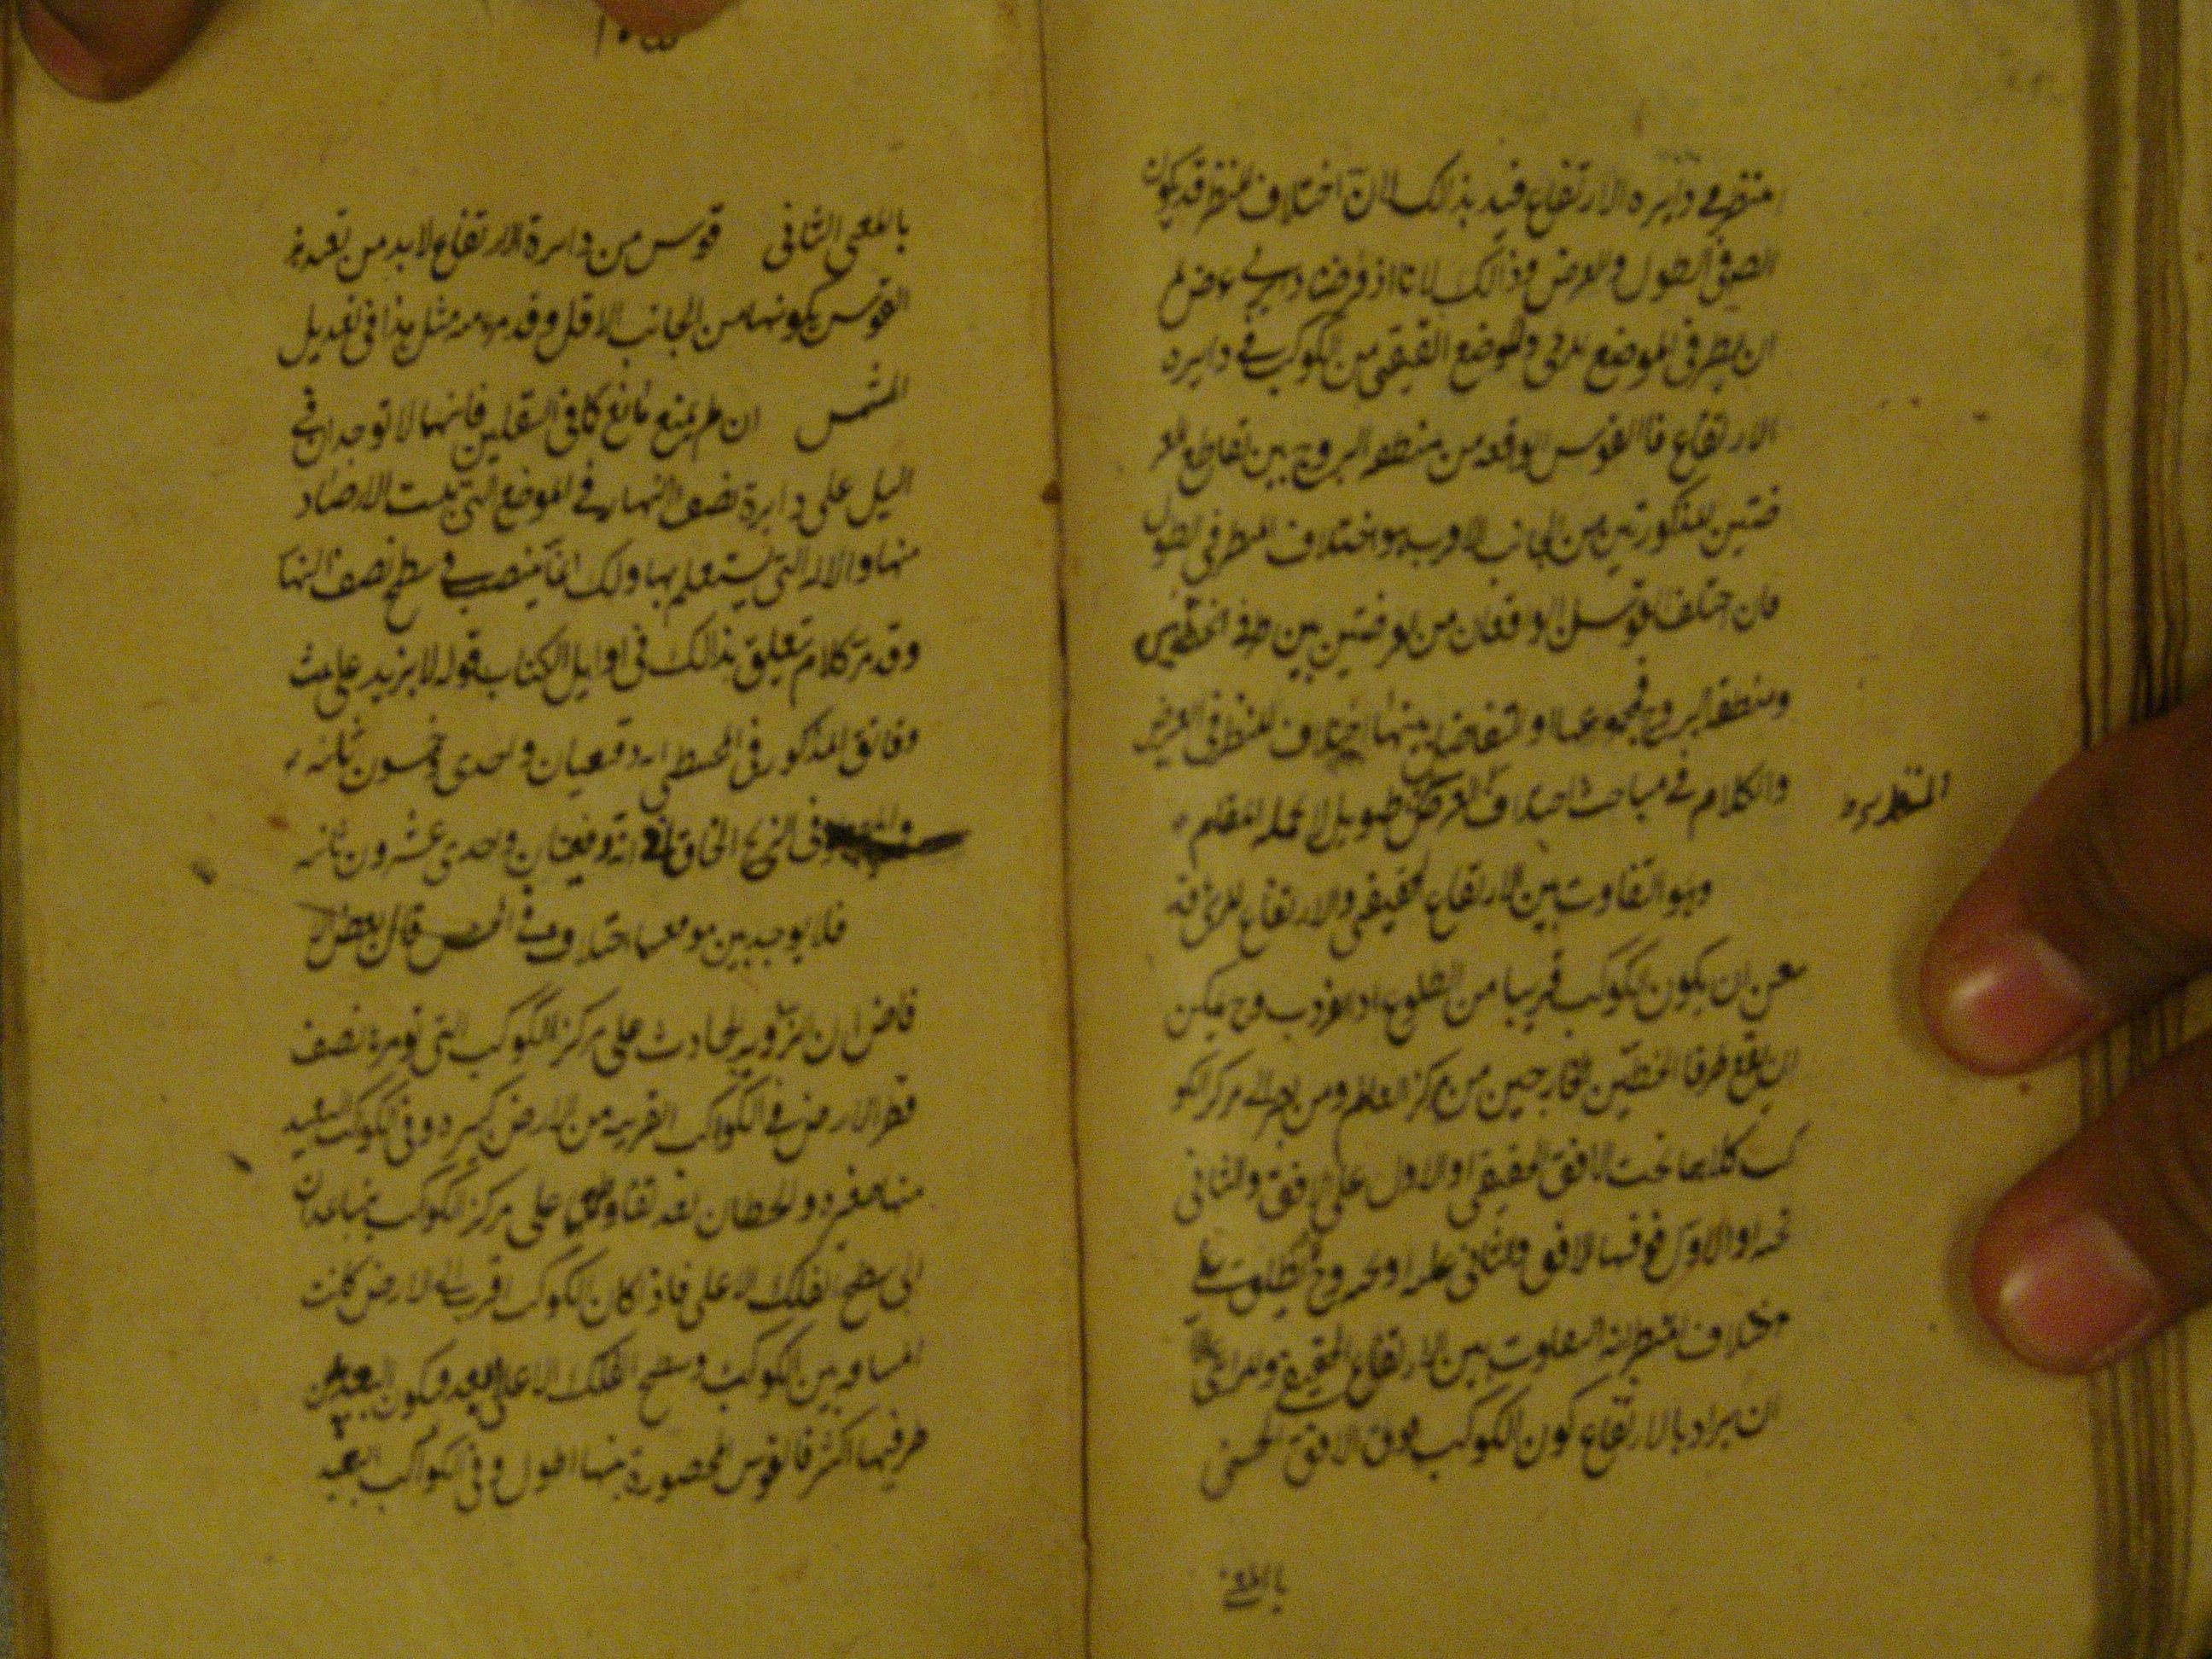 المنظر في دايره الارتفاع قيد بذلك لان اختلاف المنظر قد يكون
الصفى الطول والعرض وذالك لانا اذ فرضنا دايرتي عرض
ان بطرفى الموضع المرئى والموضع الحقيقى من الكوكب فى دايره
الارتفاع فالقوس الوقعه من منطقه البروج بين تقاطع
ضتين المذكورتين من الجانب الاقرب هو اختلاف المنظر فى الطول
فان اختلف القوسان الوقعان من العرضتين بين طرفى الخطين
ومنطقه البروج فمجموعهما او التفاضل بينهما اختلاف المنظر فى العرض
والكلام في مباحث اختلاف العرض طويل لا يحمله المقام
المنظر
وهو التفاوت بين الارتفاع الحقيقى والارتفاع المرئى قد
عن ان يكون الكوكب قريبا من الطلوع او الغروب وح يمكن
ان يقع طرفا الخطين الخارجين من مركز العالم ومن البصر الى مركز الكو
كب كلاهما تحت الافق الحقيقى او الاول على الافق والثانى
تحته او الاول فوقها الافق والثانى عليه او تحته وح يطلق على
اختلاف المنظر انه التفاوت بين الارتفاع الحقيقى والمرئى
ان يراد بالارتفاع كون الكوكب فوق الافق الحسى
بالمعنى
بالمعنى الثانى قوس من دايرة الارتفاع لابد من تقييد
القوس بكونها من الجانب الاقل وقد مر منه مثل هذا فى تعديل
الشمس ان لم يمنع مانع كما فى السفلين فانهما لا توجدان في
اليل على دايرة نصف النهار في الموضع التى بيت الارصاد
منها والاله التى يستعلم بها ذلك انما ينصب في سطح نصف النها
وقد مر كلام تعلق بذالك فى اوايل الكتاب قوله لا يزيد على ثلث
دقائق المذكور فى المجسطى انه دقيقتان واحدى وخمسون ثانيه
وفى الزيج الخاقانى انه دقيقتان واحدى عشرون ثانيه
فلا يوجد بين موضعها اختلاف في الحس قال بعض الا
فاضل ان الزاويه الحادث على مركز الكوكب التى توترها نصف
قطر الارض في الكواكب القريبه من الارض كبيره وفى الكوكب البعيد
منها صغيره والخطان بعد تقاطعهما على مركز الكوكب يتباعدان
الى سطح الفلك الاعلى فاذا كان الكوكب اقرب الى الارض كانت
المسافه بين الكوكب وسطح الفلك الاعلى ابعد فيكون البعد بين
طرفيهما اكثر فالقوس المحصورة بينهما اطول وفى الكواكب البعيد